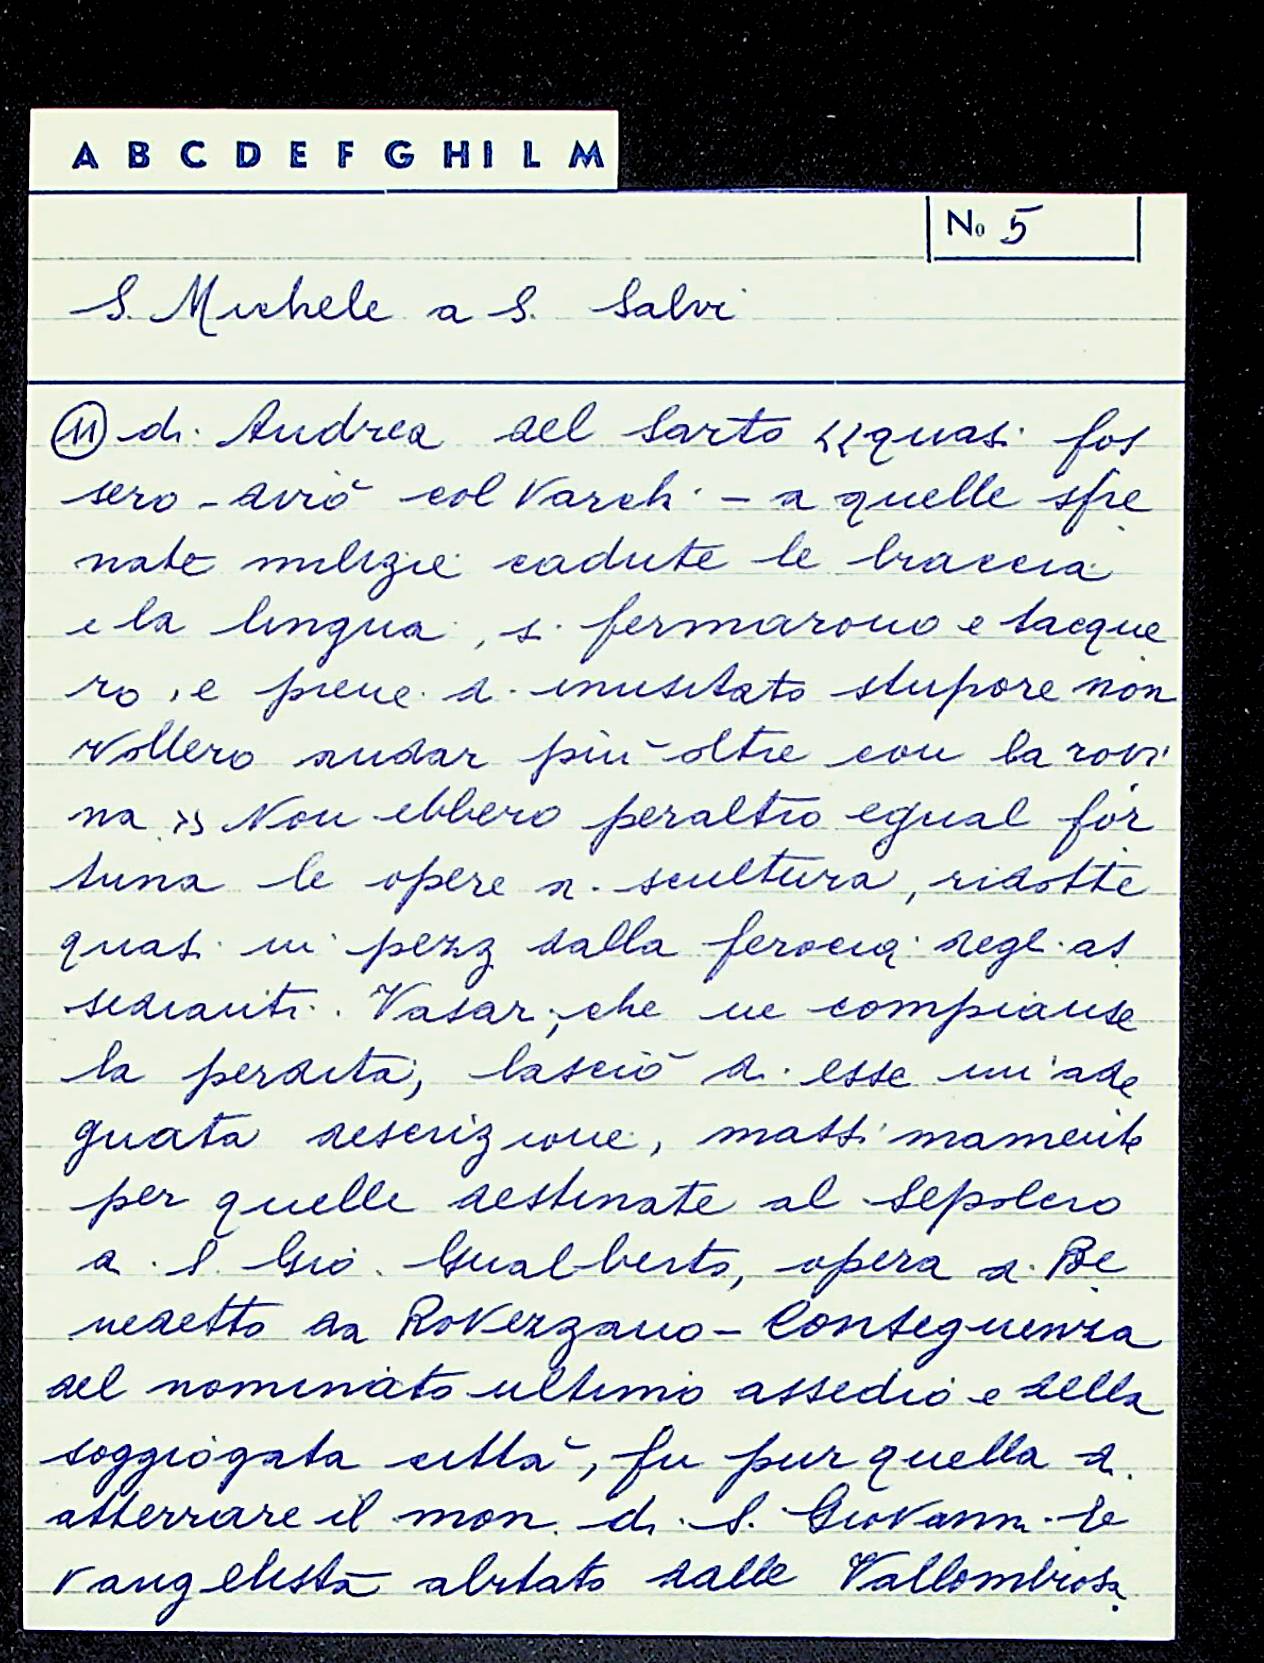 A B C D E F G H I L M
No 5
S. Michele a S. Salvi
11 di Andrea del Sarto «quasi fos
sero - dirò col Varchi - a quelle sfre
nate milizie cadute le braccia
e la lingua, si fermarono e tacque
ro, e piene di inusitato stupore non
vollero andar più oltre con la rovi
na» Non ebbero peraltro egual for
tuna le opere di scultura, ridotte
quasi in pezzi dalla ferocia degli as
sedianti. Vasari, che ne compianse
la perdita, lasciò di esse un'ade
guata descrizione, massimamente
per quelle destinate al sepolcro
di S. Gio. Gualberto, opera di Be
nedetto da Rovezzano - Conseguenza
del nominato ultimo assedio e della
soggiogata città, fu pur quella di
atterrare il mon. di S. Giovanni E
vangelista abitato dalle Vallombrosa